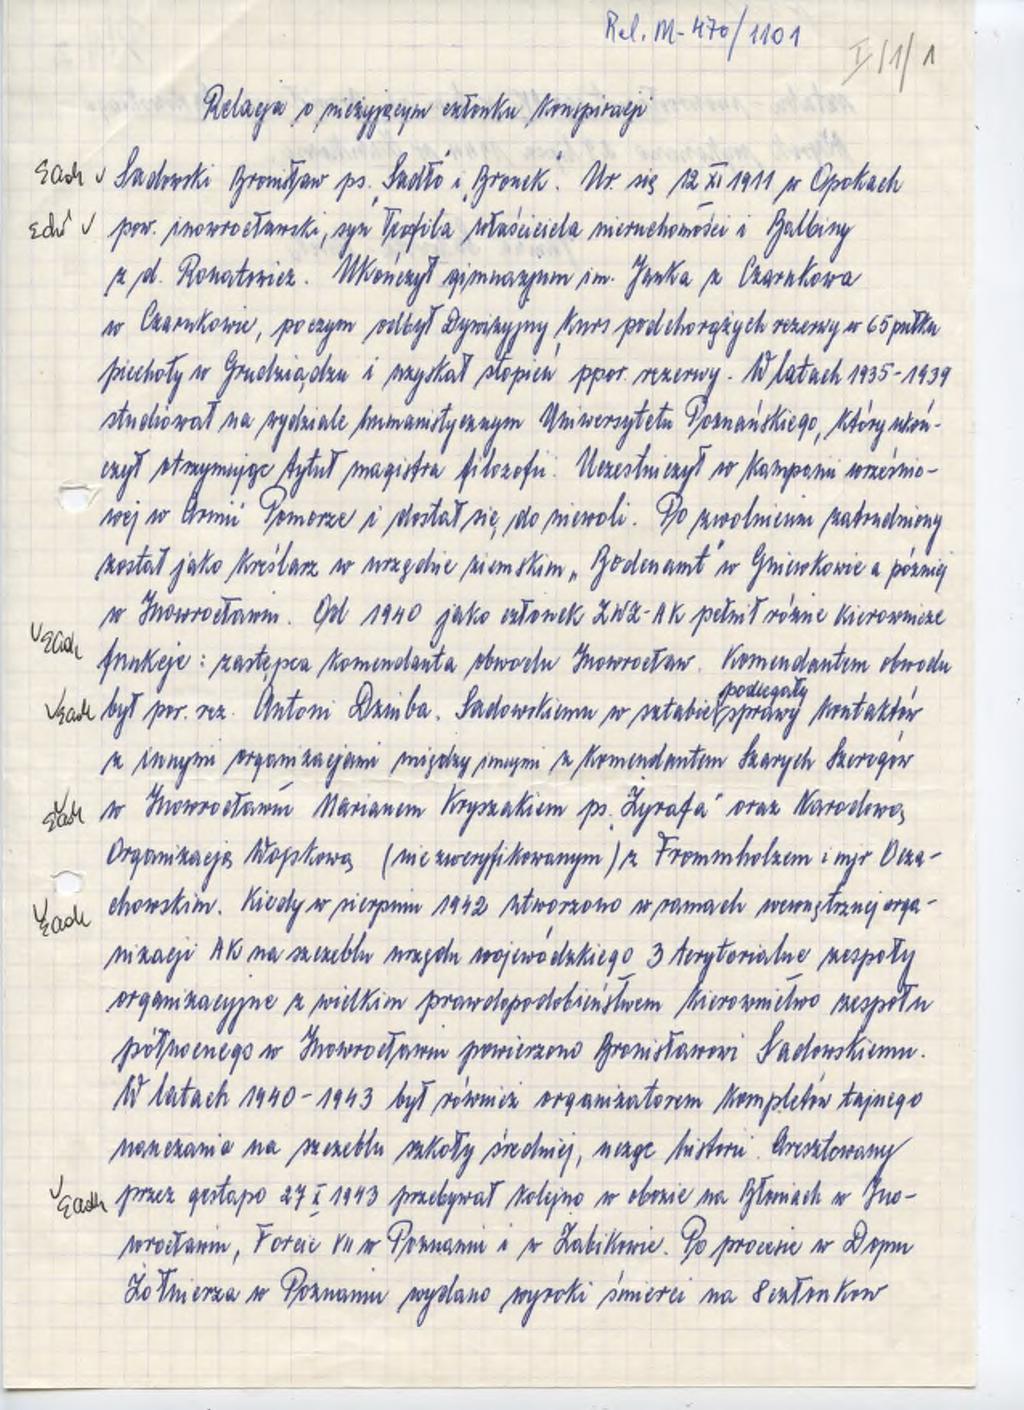 Rel. M-470/1101
I/1/1
Relacja o nieżyjącym członku konspiracji
Sadowski Bronisław ps. "Sadło i "Bronek". Ur. się 12 XI 1911 w Opokach
pow. inowrocławski, syn Teofila właściciela nieruchomości i Balbiny
z d. Ronatowicz. Ukończył gimnazjum im. Janka z Czarnkowa
w Czarnkowie, poczym odbył Dywizyjny kurs podchorążych rezerwy w 65 pułku
piechoty w Grudziądzu i uzyskał stopień ppor. rezerwy. W latach 1935-1939
studiował na wydziale humanistycznym Uniwersytetu Poznańskiego, który ukoń-
czył otrzymując tytuł magistra filozofii. Uczestniczył w kampanii wrześnio-
wej w Armii Pomorze i dostał się do niewoli. Po zwolnieniu zatrudniony
został jako kreślarz w urzędzie ziemskim „Bodenamt" w Gniewkowie a później
w Inowrocławiu. Od 1940 jako członek ZWZ-AK pełnił różne kierownicze
funkcje: zastępca komendanta obwodu Inowrocław. Komendantem obwodu
był por. rez. Antoni Dziuba. Sadowskiemu w sztabie podlegały sprawy kontaktów
z innymi organizacjami między innymi z komendantem Szarych Szeregów
w Inowrocławiu Marianem Kryszakiem ps. „Żyrafa" oraz Narodową
Organizacją Wojskową (nie zweryfikowanym) z Frommholzem i mjr Ocza-
chowskim. Kiedy w sierpniu 1942 utworzono w ramach wewnętrznej orga-
nizacji AK na szczeblu urzędu wojewódzkiego 3 terytorialne zespoły
organizacyjne z wielkim prawdopodobieństwem kierownictwo zespołu
północnego w Inowrocławiu powierzono Bronisławowi Sadowskiemu.
W latach 1940-1943 był również organizatorem kompletów tajnego
nauczania na szczeblu szkoły średniej, ucząc historii. Aresztowany
przez gestapo 27 I 1943 przebywał kolejno w obozie na Błoniach w Ino-
wrocławiu, Forcie VII w Poznaniu i w Żabikowie. Po procesie w Domu
Żołnierza w Poznaniu wydano wyroki śmierci na 8 członkow